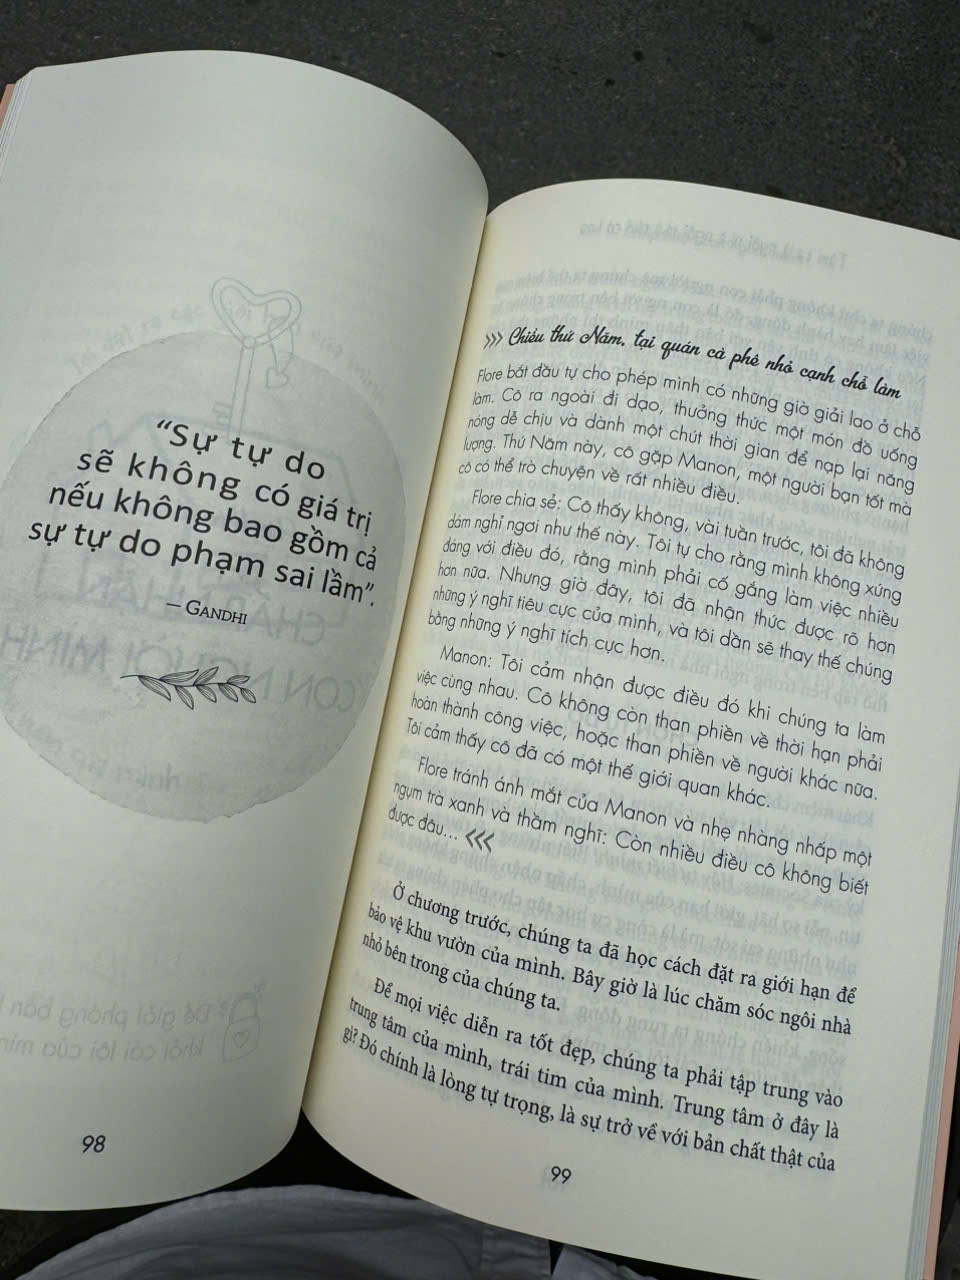 “Sự tự do
sẽ không có giá trị
nếu không bao gồm cả
sự tự do phạm sai lầm”.
— GANDHI
98
››› Chiều thứ Năm, tại quán cà phê nhỏ cạnh chỗ làm
Flore bắt đầu tự cho phép mình có những giờ giải lao ở chỗ
làm. Cô ra ngoài đi dạo, thưởng thức một món đồ uống
nóng dễ chịu và dành một chút thời gian để nạp lại năng
lượng. Thứ Năm này, cô gặp Manon, một người bạn tốt mà
cô có thể trò chuyện về rất nhiều điều.
Flore chia sẻ: Cô thấy không, vài tuần trước, tôi đã không
dám nghỉ ngơi như thế này. Tôi tự cho rằng mình không xứng
đáng với điều đó, rằng mình phải cố gắng làm việc nhiều
hơn nữa. Nhưng giờ đây, tôi đã nhận thức được rõ hơn
những ý nghĩ tiêu cực của mình, và tôi dần sẽ thay thế chúng
bằng những ý nghĩ tích cực hơn.
Manon: Tôi cảm nhận được điều đó khi chúng ta làm
việc cùng nhau. Cô không còn than phiền về thời hạn phải
hoàn thành công việc, hoặc than phiền về người khác nữa.
Tôi cảm thấy cô đã có một thế giới quan khác.
Flore tránh ánh mắt của Manon và nhẹ nhàng nhấp một
ngụm trà xanh và thầm nghĩ: Còn nhiều điều cô không biết
được đâu... ‹‹‹
Ở chương trước, chúng ta đã học cách đặt ra giới hạn để
bảo vệ khu vườn của mình. Bây giờ là lúc chăm sóc ngôi nhà
nhỏ bên trong của chúng ta.
Để mọi việc diễn ra tốt đẹp, chúng ta phải tập trung vào
trung tâm của mình, trái tim của mình. Trung tâm ở đây là
gì? Đó chính là lòng tự trọng, là sự trở về với bản chất thật của
99